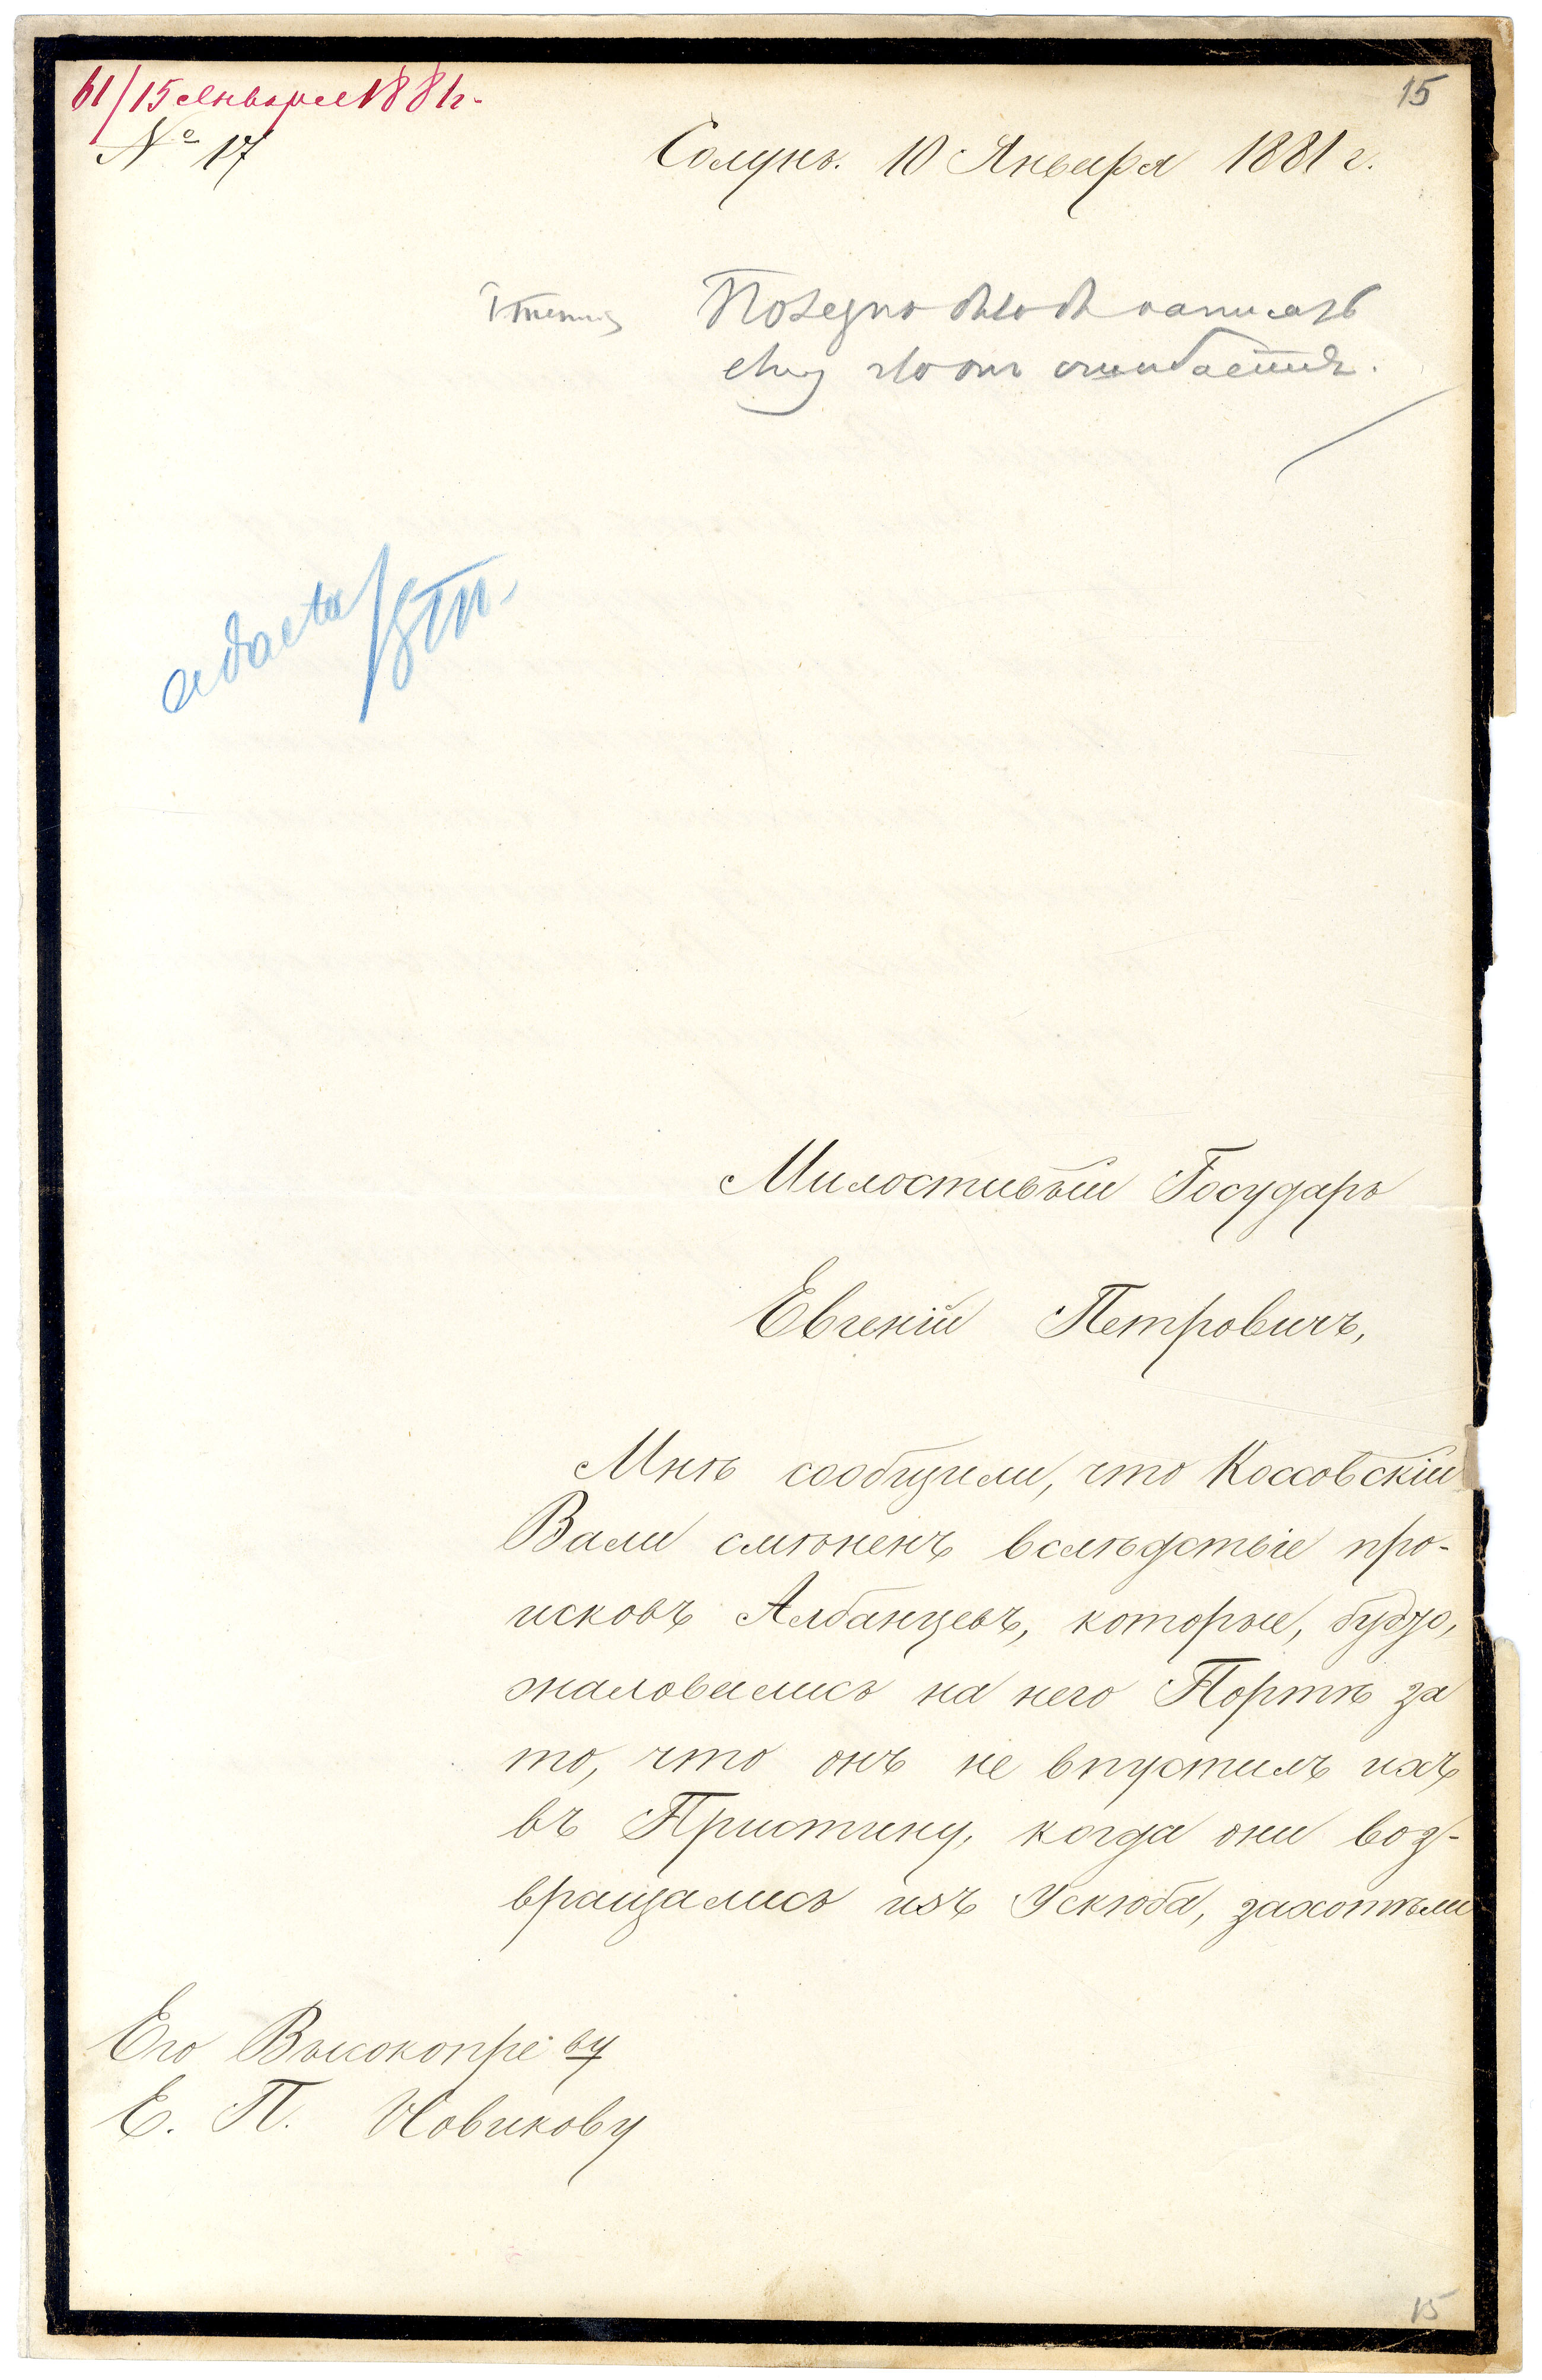 61/15 Января 1881 г.
15
№ 17
Солунь. 10 Января 1881 г.
написать
ему что онъ ошибается.
ad acta
Милостивый Государь
Евгеній Петровичъ,
Мнѣ сообщили, что Коссовскій
Вали смѣненъ вслѣдствіе про-
исковъ Албанцевъ, которые, будто,
жаловались на него Портѣ за
то, что онъ не впустилъ ихъ
въ Приштину, когда они воз-
вращались изъ Ускюба, захотѣли
Его Высокопре-ву
Е. П. Новикову
15